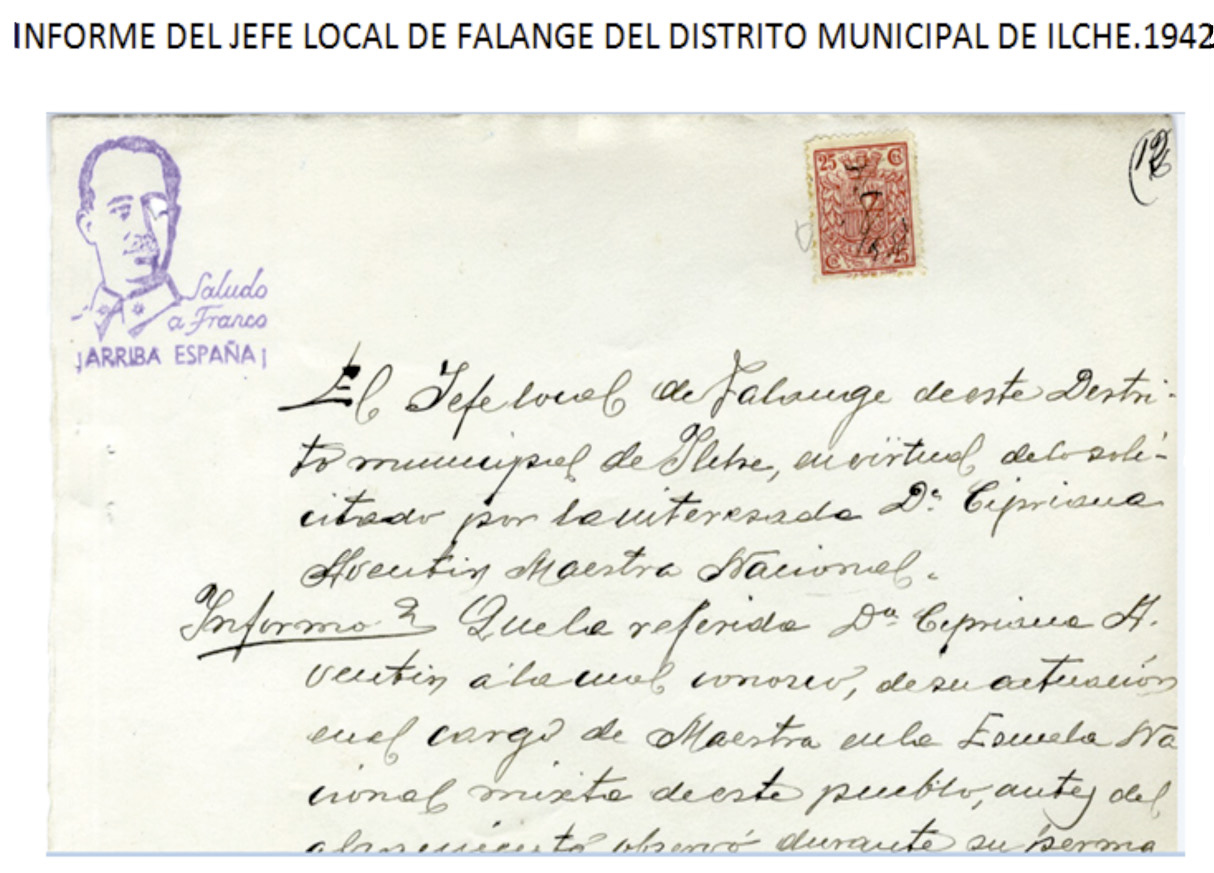 INFORME DEL JEFE LOCAL DE FALANGE DEL DISTRITO MUNICIPAL DE ILCHE.1942
25 C
C 25
Saludo
a Franco
¡ARRIBA ESPAÑA¡
El Jefe local de Falange de este Destri-
to municipal de Ilche, en virtud de lo soli-
citado por la interesada Dª Cipriana
Aventin Maestra Nacional.
Informo: Que la referida Dª Cipriana A-
ventin á la cual conozco, de su actuación
en el cargo de Maestra en la Escuela Na
cional mixta de este pueblo, antes del
alzamiento observó durante su perma